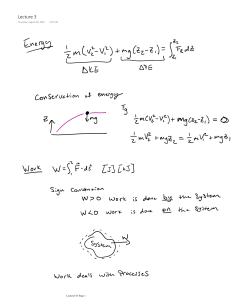 Lecture 3
Energy
½ m(V₂² - V₁²) + mg(Z₂ - Z₁) = ∫ F_z dZ
ΔKE ΔPE
Conservation of energy
Z mg
½ m(V₂² - V₁²) + mg(Z₂ - Z₁) = 0
½ mV₂² + mgZ₂ = ½ mV₁² + mgZ₁
Work W = ∫ F · ds [J] [kJ]
Sign Convention
W>0 work is done by the System
W<0 work is done on the System
System W
Work deals with Processes